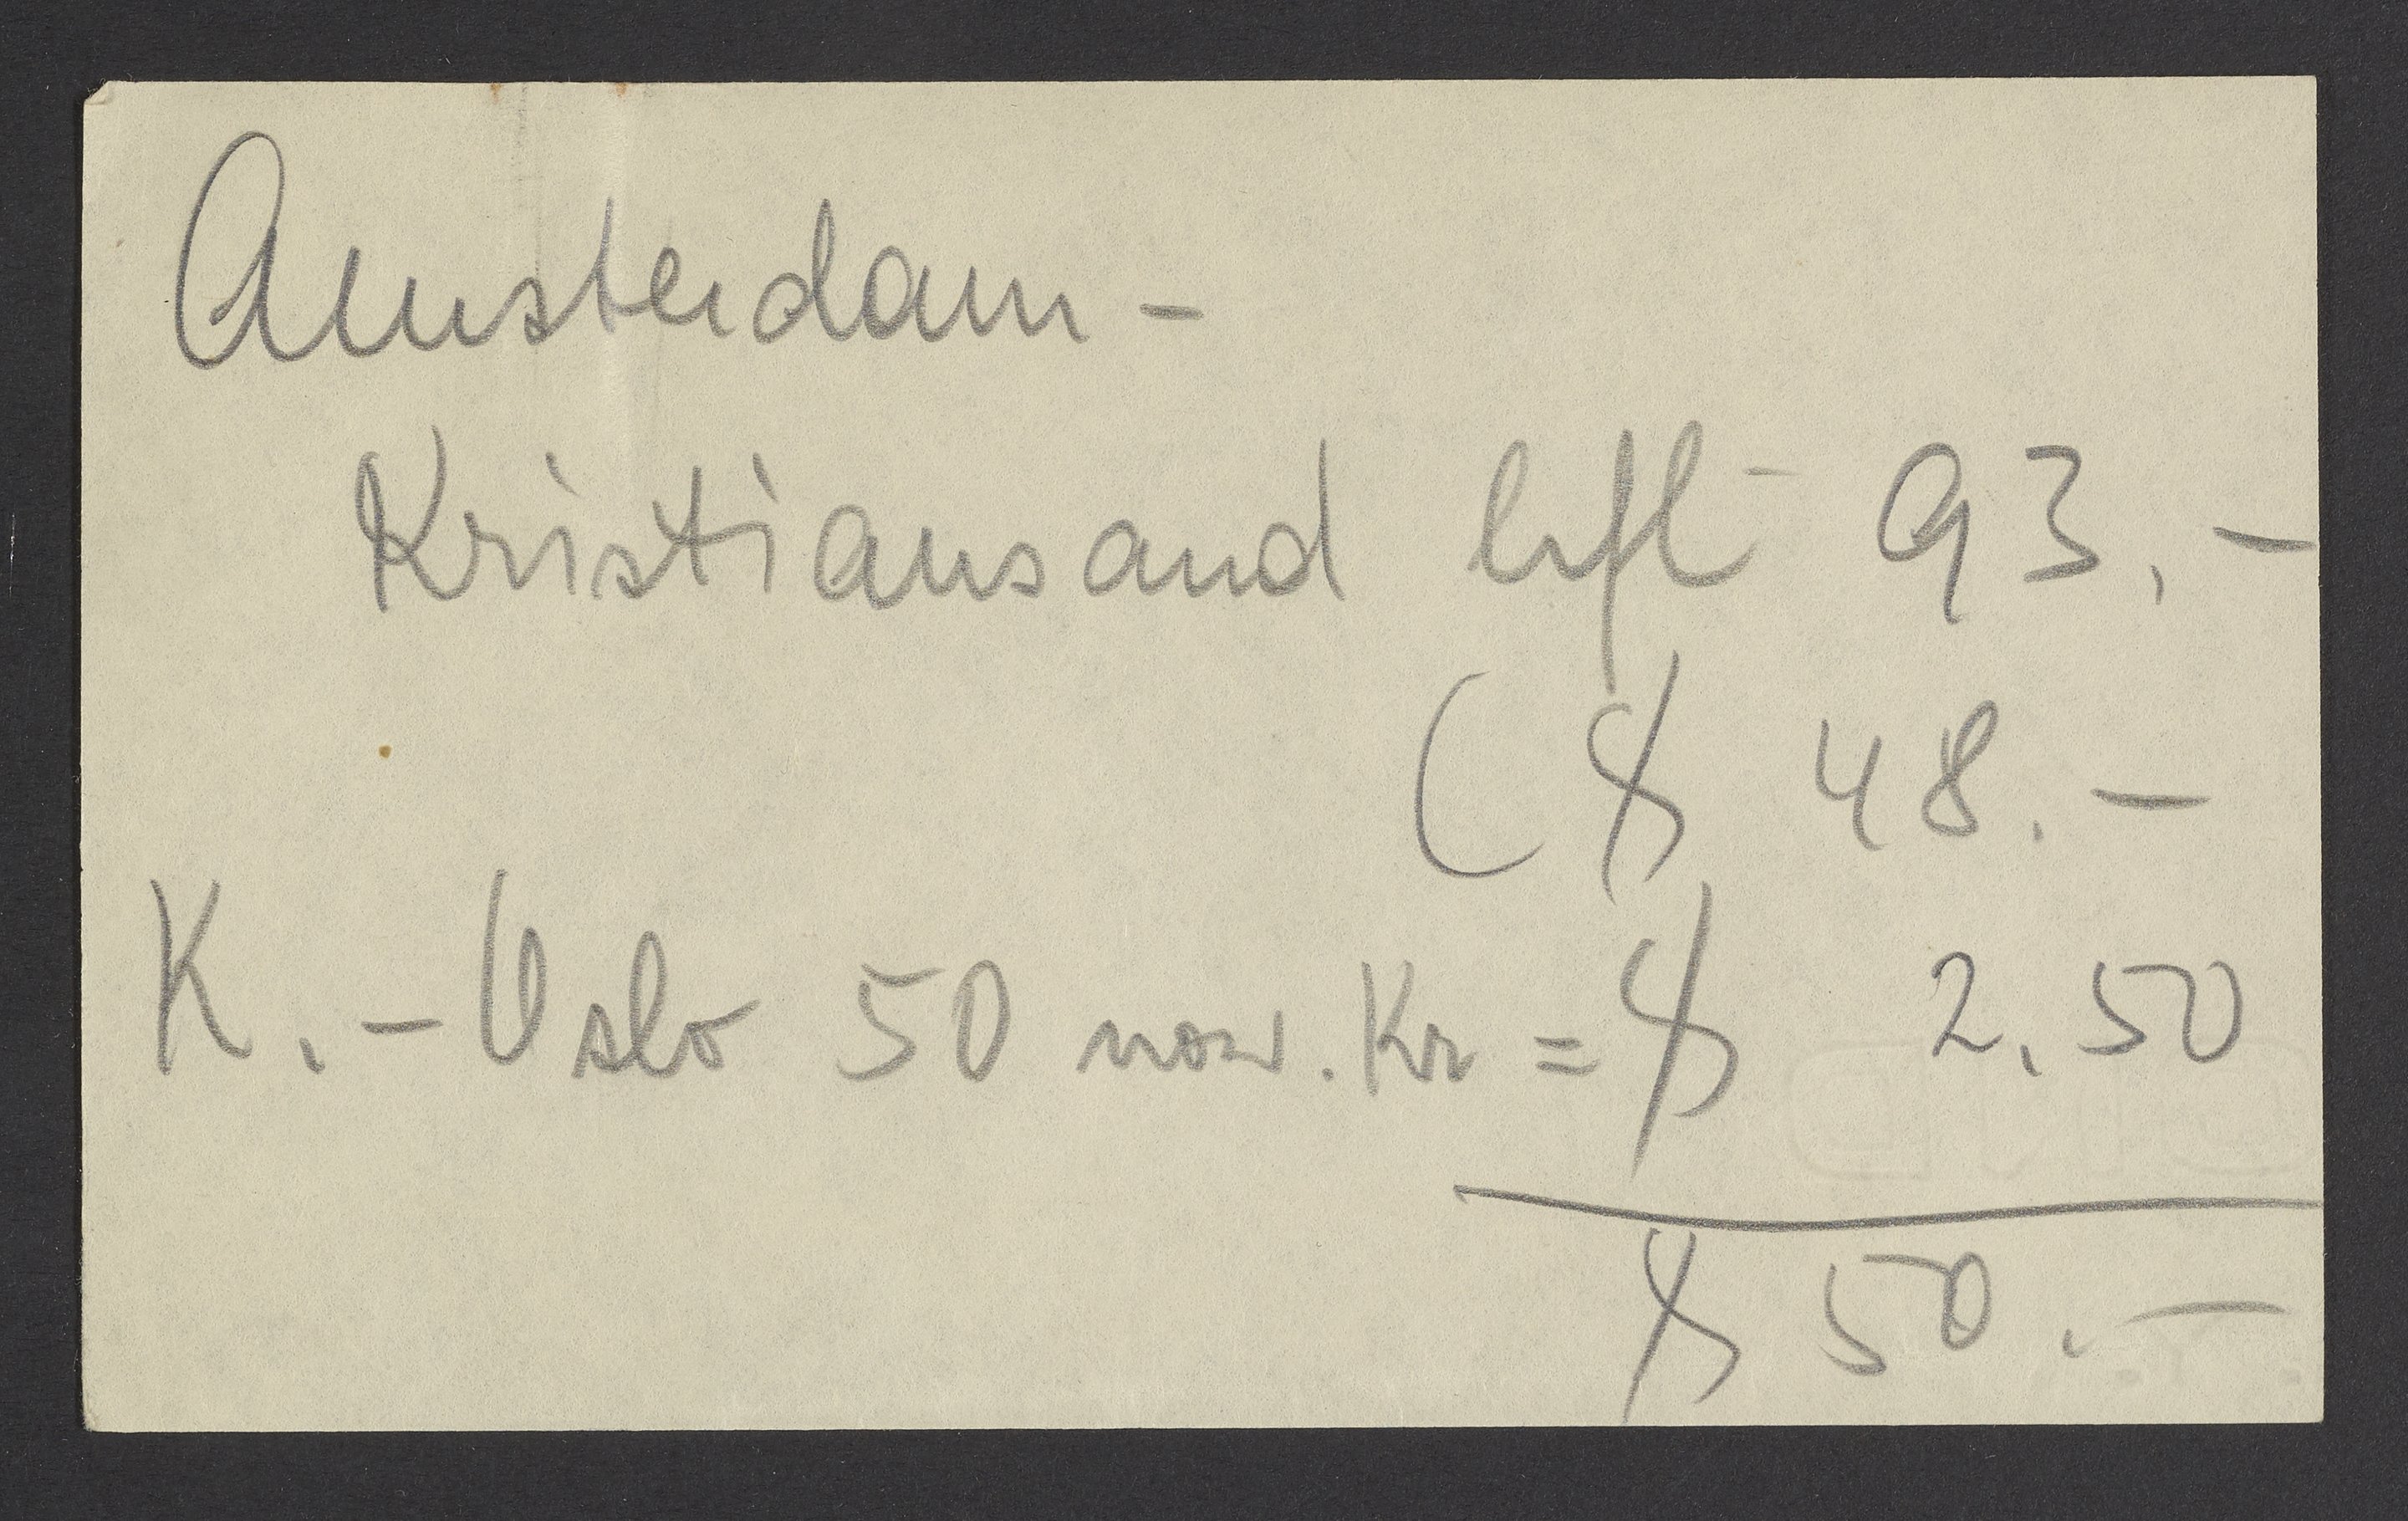 Amsterdam -
Kristiansand hfl 93.-
( $ 48.-
K.- Oslo 50 now. Kr = $ 2.50
$ 50.-